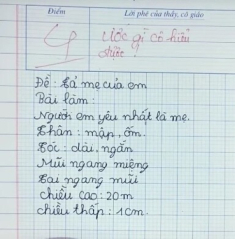 Điểm
Lời phê của thầy, cô giáo
Ước gì cô hiểu
được
Đề: Tả mẹ của em
Bài làm:
Người em yêu nhất là mẹ.
Thân: mập, ốm.
Tóc: dài, ngắn
Mũi ngang miệng
Tai ngang mũi
chiều cao: 20m
chiều thấp: 1cm.